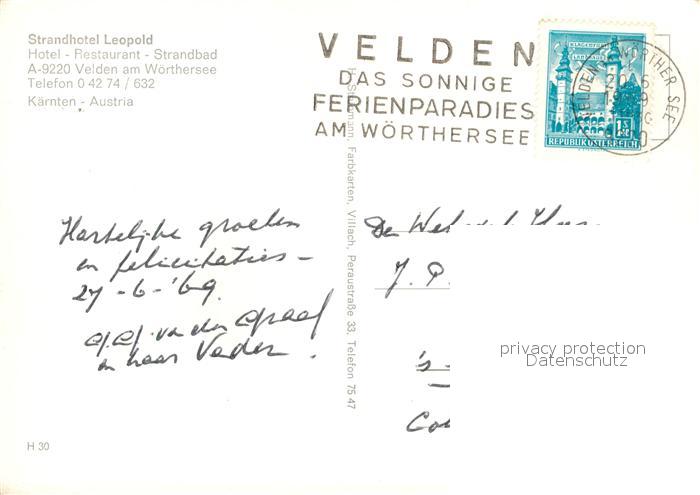 Strandhotel Leopold
Hotel - Restaurant - Strandbad
A-9220 Velden am Wörthersee
Telefon 0 42 74 / 632
Kärnten - Austria
VELDEN
DAS SONNIGE
FERIENPARADIES
AM WÖRTHERSEE
VELDEN WÖRTHER SEE
KLAGENFURT
LANDHAUS
1S
REPUBLIK ÖSTERREICH
Farbkarten, Villach, Peraustraße 33, Telefon 75 47
Hartelijke groeten
en felicitaties -
27 - 6 - '69.
v. der Graaf
en haar Vader.
J. P.
's
privacy protection
Datenschutz
H 30